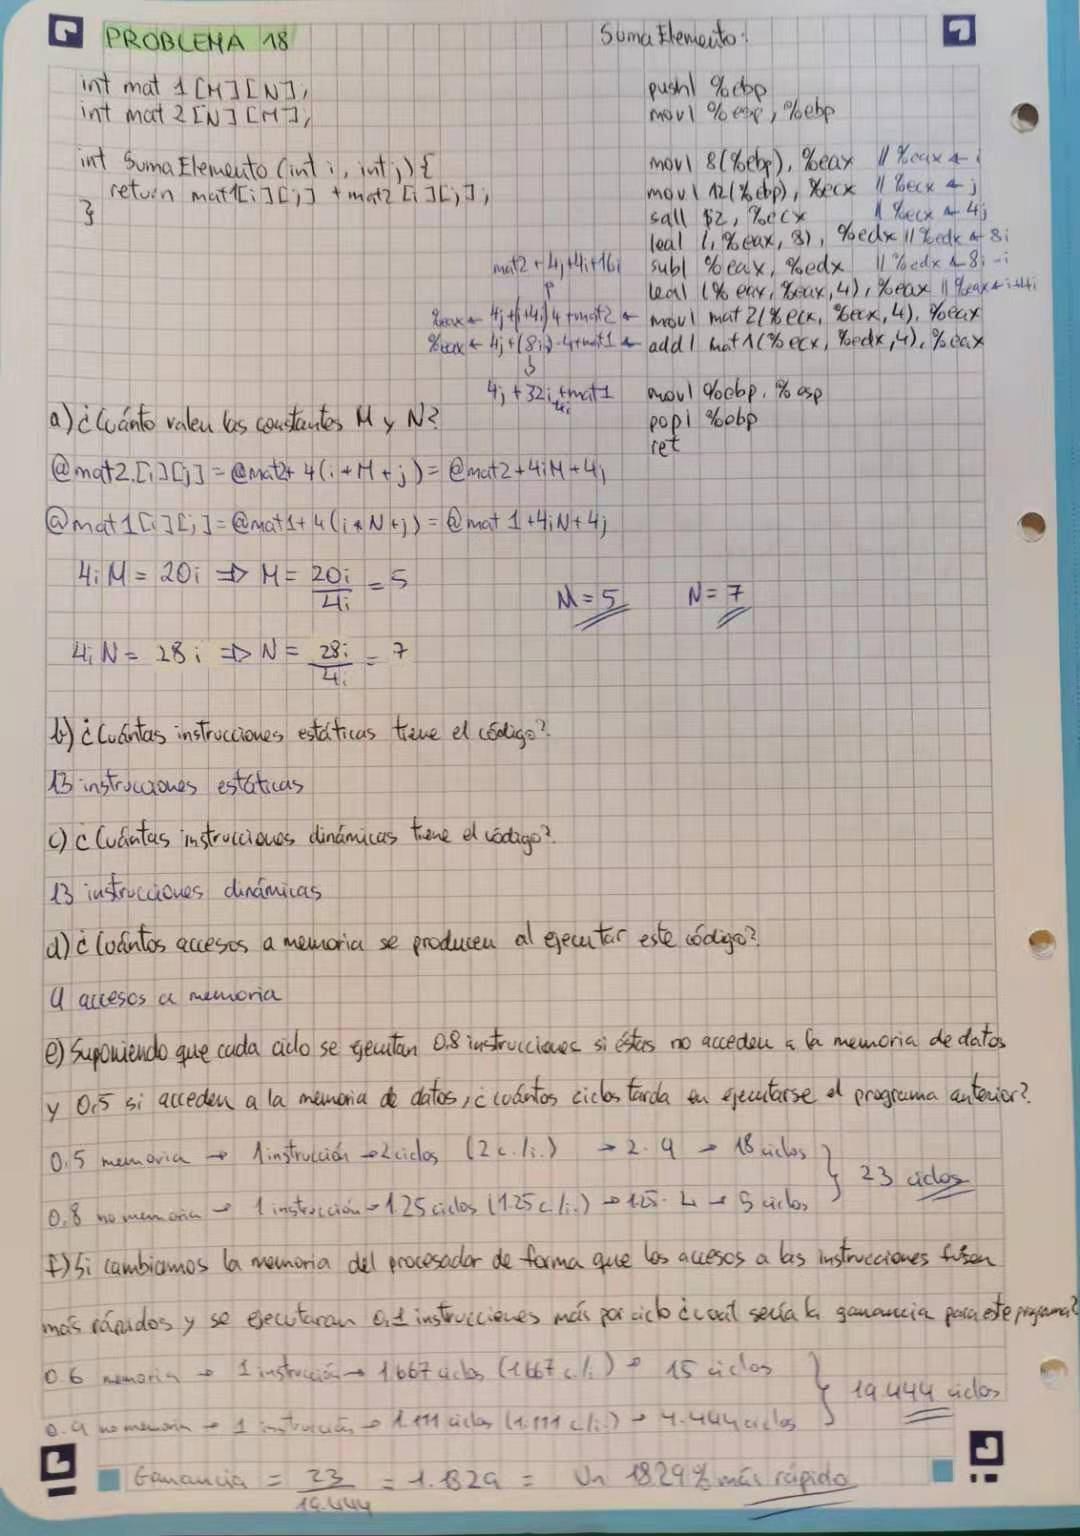 PROBLEMA 18
int mat 1 [M][N];
int mat 2 [N][M];
int Suma Elemento (int i, int j) {
return mat1[i][j] + mat2 [i][j];
}
Suma Elemento:
pushl %ebp
movl %esp, %ebp
movl 8(%ebp), %eax // %eax ← i
movl 12(%ebp), %ecx // %ecx ← j
sall $2, %ecx // %ecx ← 4j
leal (, %eax, 8), %edx // %edx ← 8i
mat2 + 4j+4i+16i subl %eax, %edx // %edx ← 8i - i
leal (%eax, %eax, 4), %eax // %eax ← i+4i
%eax ← 4j+(i+4i)4 + mat2 ← movl mat2(%ecx, %eax, 4), %eax
%eax ← 4j+(8i-i)·4+mat1 ← addl mat1(%ecx, %edx, 4), %eax
4j + 32i + mat1 movl %ebp, %esp
4i
popl %ebp
ret
a) ¿Cuánto valen las constantes M y N?
@mat2[i][j] = @mat2+ 4(i * M + j) = @mat2+4iM+4j
@mat1[i][j] = @mat1+4(i*N+j) = @mat 1+4iN+4j
4iM = 20i ⇒ M = 20i/4i = 5
M=5 N=7
4iN = 28i ⇒ N = 28i/4i = 7
b) ¿Cuántas instrucciones estáticas tiene el código?
13 instrucciones estáticas
c) ¿Cuántas instrucciones dinámicas tiene el código?
13 instrucciones dinámicas
d) ¿Cuántos accesos a memoria se producen al ejecutar este código?
9 accesos a memoria
e) Suponiendo que cada ciclo se ejecutan 0.8 instrucciones si éstas no acceden a la memoria de datos
y 0.5 si acceden a la memoria de datos, ¿cuántos ciclos tarda en ejecutarse el programa anterior?
0.5 memoria → 1 instrucción → 2 ciclos (2 c./i.) → 2·9 → 18 ciclos } 23 ciclos
0.8 no memoria → 1 instrucción → 1.25 ciclos (1.25 c/i.) → 1.25·4 → 5 ciclos
f) Si cambiamos la memoria del procesador de forma que los accesos a las instrucciones fuesen
más rápidos y se ejecutaran 0,1 instrucciones más por ciclo ¿cuál sería la ganancia para este programa?
0.6 memoria → 1 instrucción → 1.667 ciclos (1.667 c/i.) → 15 ciclos } 19.444 ciclos
0.9 no memoria → 1 instrucción → 1.111 ciclos (1.111 c/i.) → 4.444 ciclos
Ganancia = 23/19.444 = 1.1829 = Un 18'29% más rápido